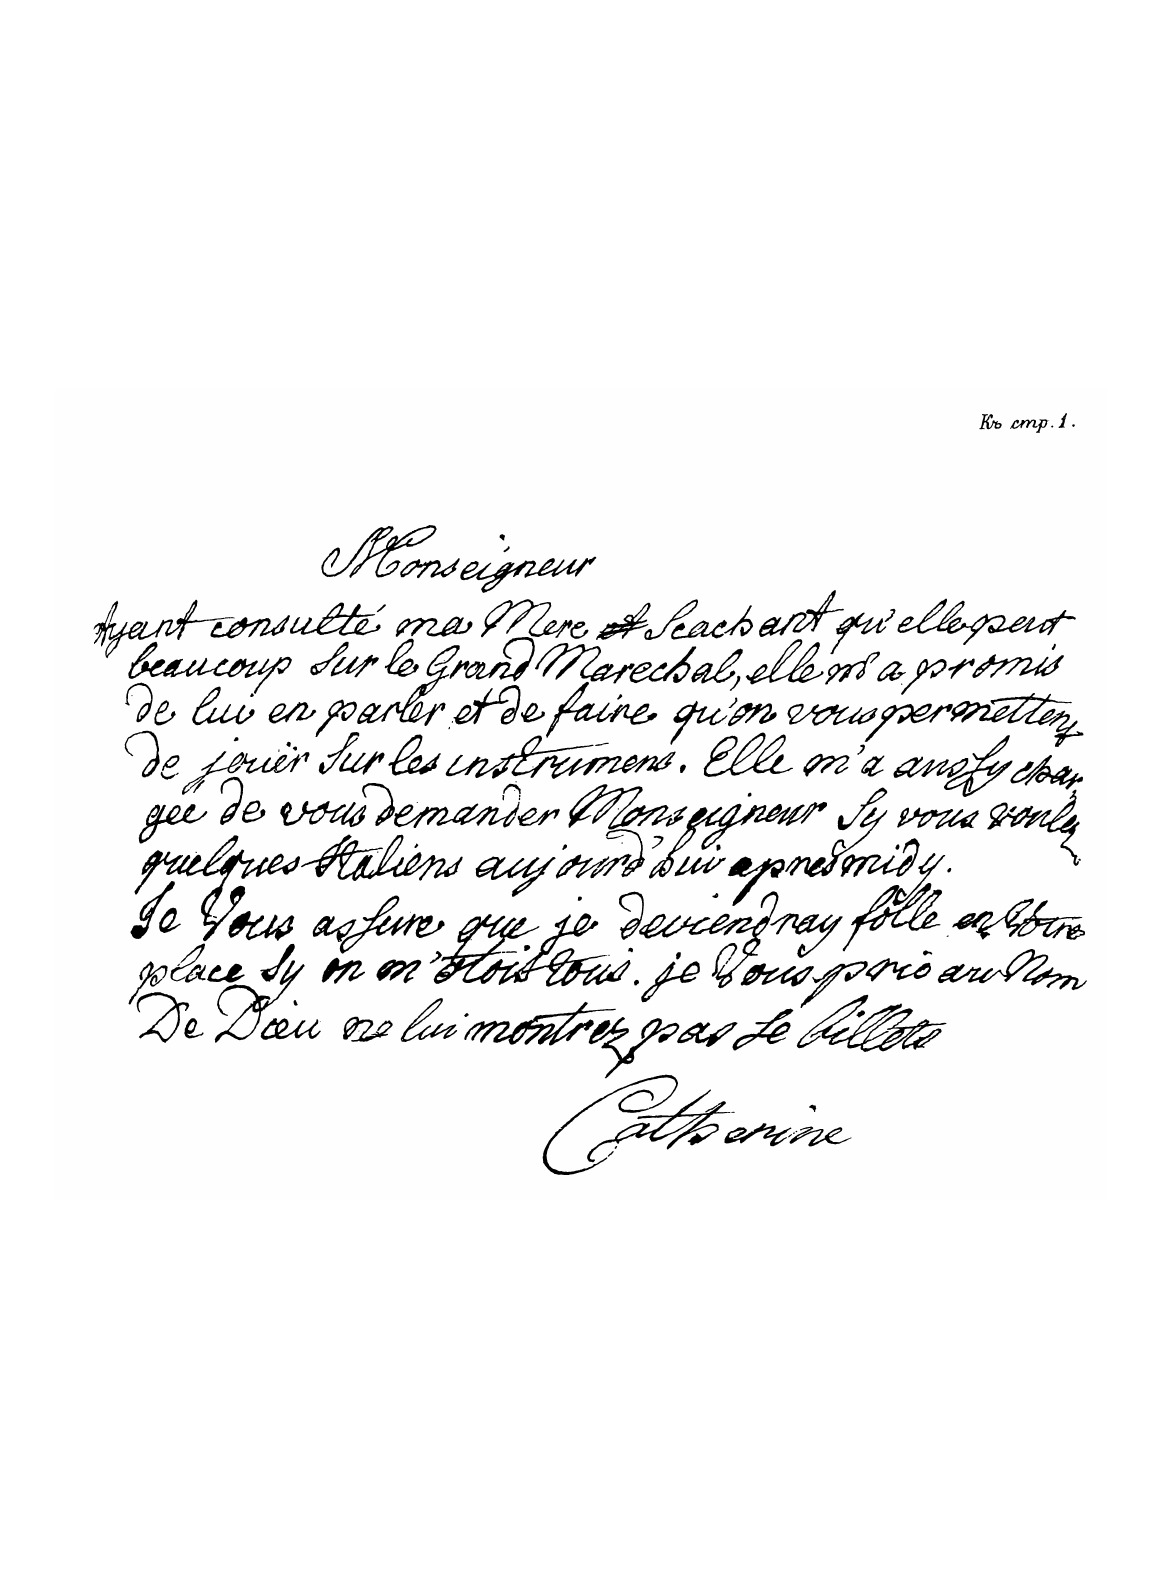 Къ стр. 1.
Monseigneur
Ayant consulté ma Mere et Scachant qu'elle peut
beaucoup Sur le Grand Marechal, elle m'a promis
de lui en parler et de faire qu'on vous permettent
de jouër Sur les instrumens. Elle m'a aussy char
gee de vous demander Monseigneur Sy vous voulez
quelques Italiens aujourd'hui apres midy.
Je Vous assure que je deviendray folle en Votre
place Sy on m'otoit tous. je Vous prie au Nom
De Dieu ne lui montrez pas Se billets
Catherine